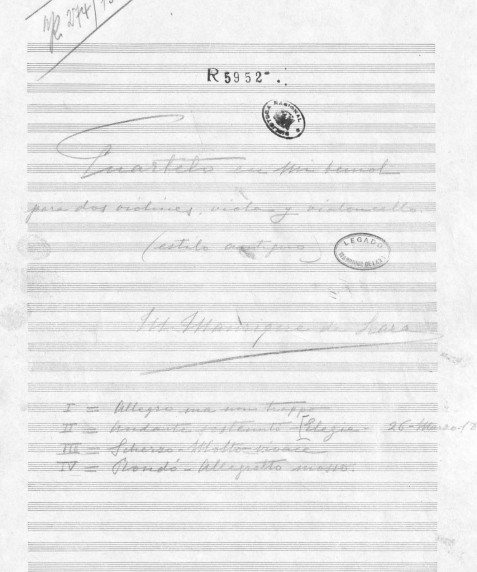 R 5952
BIBLIOTECA NACIONAL
Cuarteto en Mi bemol
para dos violines, viola y violoncello
(estilo antiguo)
LEGADO
M. Manrique de Lara
I = Allegro ma non troppo
II = Andante sostenuto [Elegia - 26-Marzo
III = Scherzo - Molto vivace
IV = Rondó - Allegretto mosso.